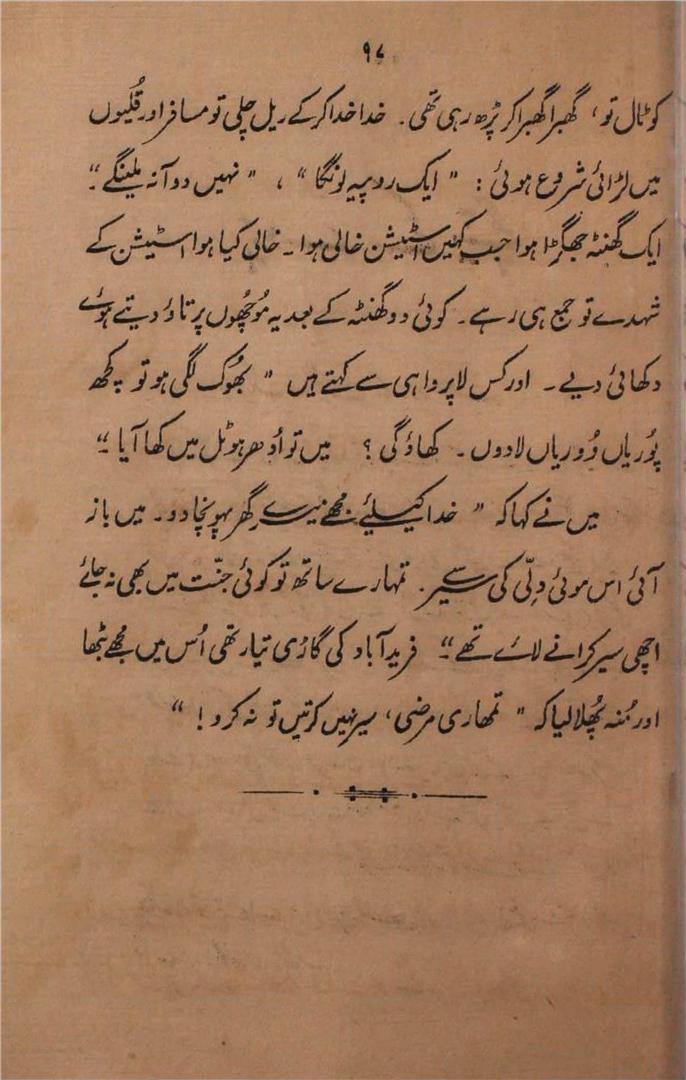 ۹۷
کو ٹال تو، گھبرا گھبرا کر پڑھ رہی تھی۔ خدا خدا کر کے ریل چلی تو مسافر اور قُلیوں
میں لڑائی شروع ہوئی: " ایک روپیہ لونگا "، " نہیں دو آنہ ملینگے "۔
ایک گھنٹہ جھگڑا ہوا جب کہیں اسٹیشن خالی ہوا۔ خالی کیا ہوا اسٹیشن کے
شہدے تو جمع ہی رہے۔ کوئی دو گھنٹہ کے بعد یہ مُوچھوں پر تاؤ دیتے ہوئے
دکھائی دیے۔ اور کس لاپرواہی سے کہتے ہیں " بھُوک لگی ہو تو کچھ
پُوریاں وُوریاں لا دوں۔ کھاؤ گی؟ میں تو اُدھر ہوٹل میں کھا آیا "
میں نے کہا کہ " خدا کیلئے مجھے میرے گھر پہونچا دو۔ میں باز
آئی اس موئی دِلّی کی سیر سے۔ تمہارے ساتھ تو کوئی جنّت میں بھی نہ جائے
اچھی سیر کرانے لائے تھے "۔ فریدآباد کی گاڑی تیار تھی اُس میں مجھے بٹھا
اور مُنہ پھُلا لیا کہ " تمھاری مرضی، سیر نہیں کرتیں تو نہ کرو! "